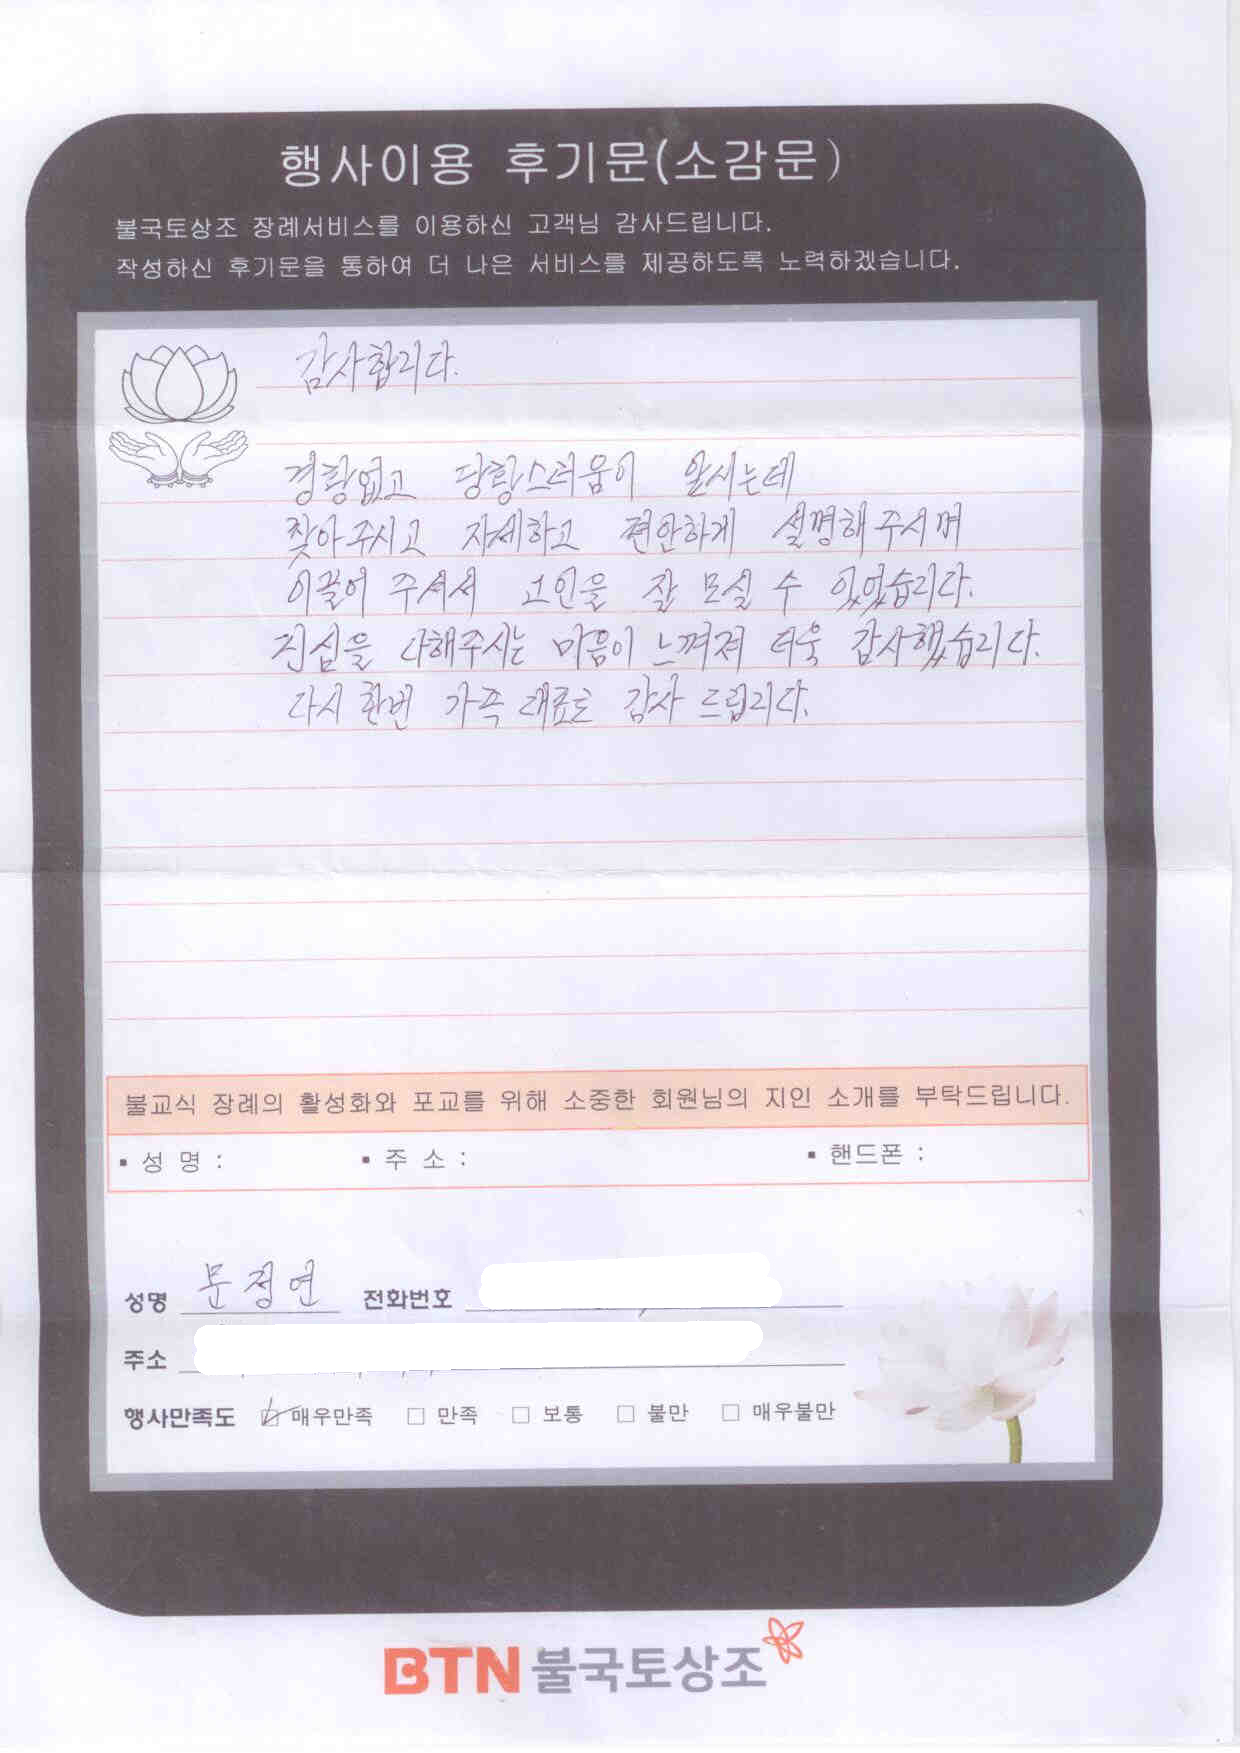 행사이용 후기문(소감문)
불국토상조 장례서비스를 이용하신 고객님 감사드립니다.
작성하신 후기문을 통하여 더 나은 서비스를 제공하도록 노력하겠습니다.
감사합니다.
경황없고 당황스러움이 앞서는데
찾아주시고 자세하고 편안하게 설명해주시며
이끌어 주셔서 고인을 잘 모실 수 있었습니다.
진심을 다해주시는 마음이 느껴져 더욱 감사했습니다.
다시 한번 가족 대표로 감사 드립니다.
불교식 장례의 활성화와 포교를 위해 소중한 회원님의 지인 소개를 부탁드립니다.
▪ 성 명 : ▪ 주 소 : ▪ 핸드폰 :
성명 문정연 전화번호
주소
행사만족도 ☑ 매우만족 □ 만족 □ 보통 □ 불만 □ 매우불만
BTN 불국토상조